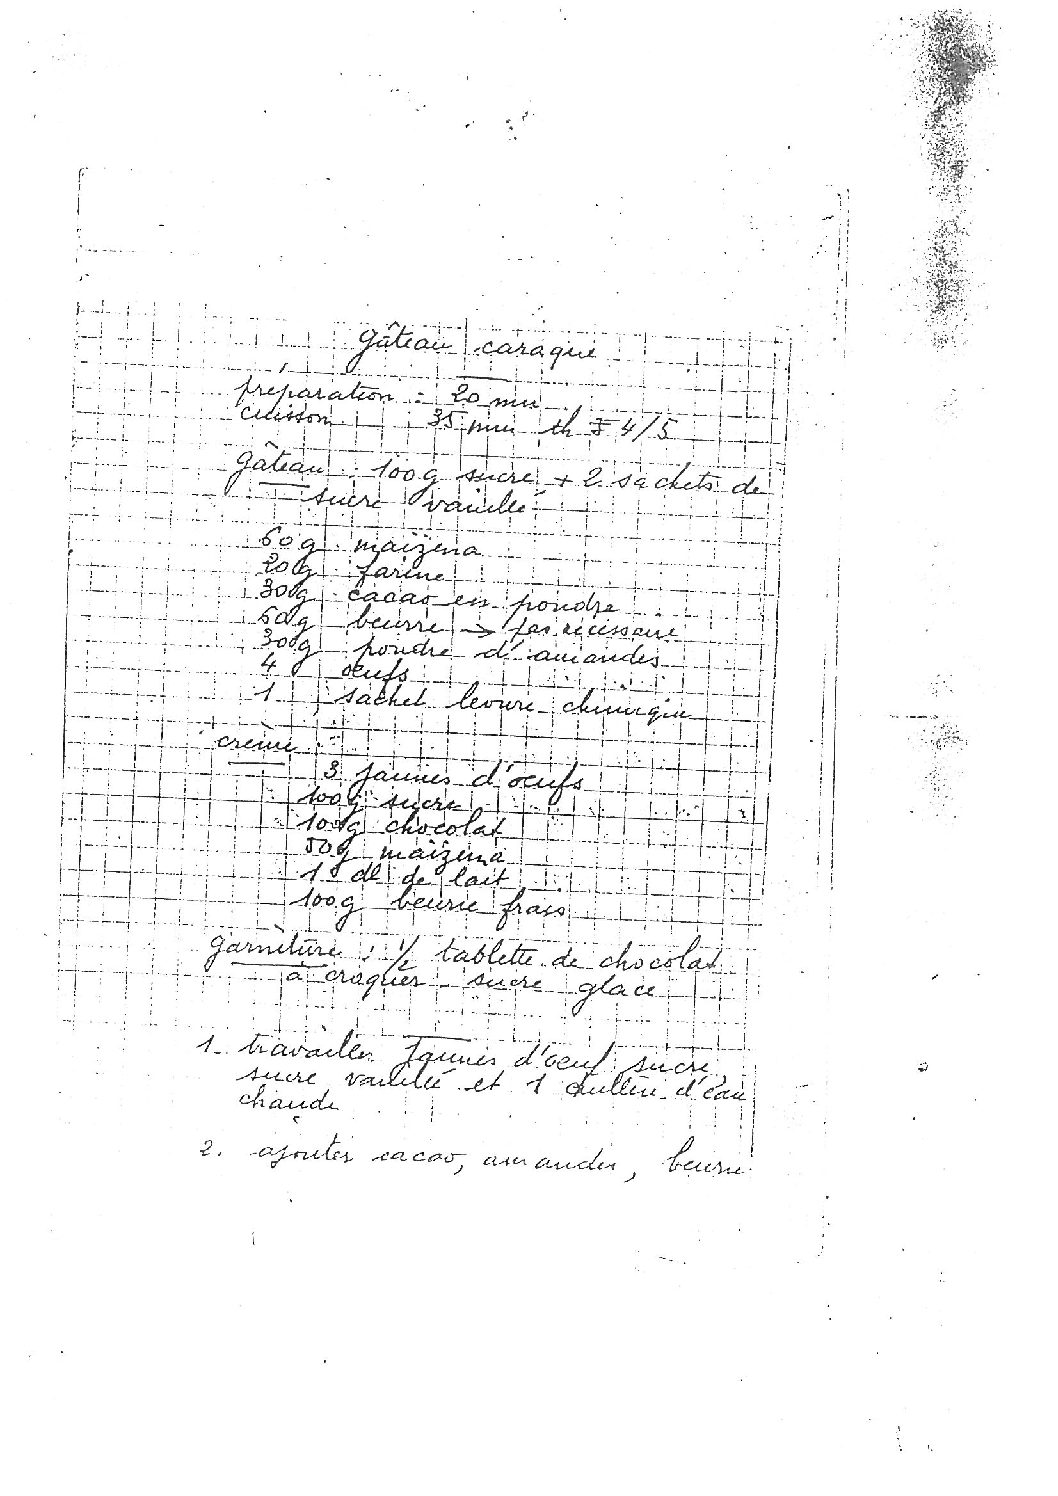 Gâteau caraque
préparation : 20 min
cuisson : 35 min th 4/5
Gâteau : 100g sucre + 2 sachets de
sucre vanillé
60g maïzena
20g farine
30g cacao en poudre
60g beurre → pas nécessaire
30g poudre d'amandes
4 oeufs
1 sachet levure chimique
crème :
3 jaunes d'oeufs
100g sucre
100g chocolat
50g maïzena
1 dl de lait
100g beurre frais
garniture : 1/2 tablette de chocolat
à croquer sucre glace
1. travailler jaunes d'oeuf sucre,
sucre vanillé et 1 cuillère d'eau
chaude
2. ajouter cacao, amandes, beurre